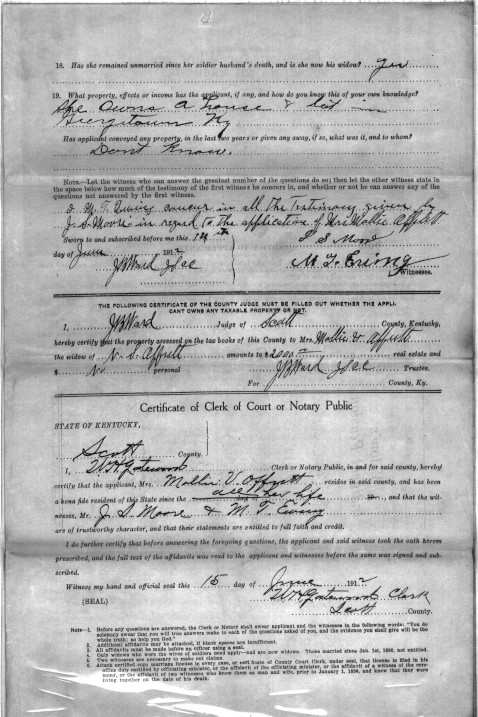 18. Has she remained unmarried since her soldier husband's death, and is she now his widow? Yes
19. What property, effects or income has the applicant, if any, and how do you know this of your own knowledge?
She owns a house & lot in
Georgetown Ky
Has applicant conveyed any property, in the last two years or given any away, if so, what was it, and to whom?
Dont Know.
NOTE.—Let the witness who can answer the greatest number of the questions do so; then let the other witness state in
the space below how much of the testimony of the first witness he concurs in, and whether or not he can answer any of the
questions not answered by the first witness.
I M. T. Ewing concur in all the Testimony given by
J. S. Moore in regard to the application of Mrs Mollie Offutt.
Sworn to and subscribed before me this 14th
J S Moore
day of June 1912
M. T. Ewing
JB Ward J S C C
Witnesses.
THE FOLLOWING CERTIFICATE OF THE COUNTY JUDGE MUST BE FILLED OUT WHETHER THE APPLI-
CANT OWNS ANY TAXABLE PROPERTY OR NOT.
I, JB Ward Judge of Scott County, Kentucky,
hereby certify that the property assessed on the tax books of this County to Mrs. Mollie V. Offutt
the widow of Offutt amounts to $ 2000 real estate and
$ No personal JB Ward J S C C Trustee.
For County, Ky.
Certificate of Clerk of Court or Notary Public
STATE OF KENTUCKY,
Scott County.
I, WH Gatewood Clerk or Notary Public, in and for said county, hereby
certify that the applicant, Mrs. Mollie V. Offutt resides in said county, and has been
a bona fide resident of this State since the day all her life 19 , and that the wit-
nesses, Mr. J. S Moore & M. T. Ewing
are of trustworthy character, and that their statements are entitled to full faith and credit.
I do further certify that before answering the foregoing questions, the applicant and said witness took the oath herein
prescribed, and the full text of the affidavits was read to the applicant and witnesses before the same was signed and sub-
scribed.
Witness my hand and official seal this 15 day of June 1912
WH Gatewood Clerk
(SEAL) Scott County.
Note—1. Before any questions are answered, the Clerk or Notary shall swear applicant and the witnesses in the following words: "You do
solemnly swear that you will true answers make to each of the questions asked of you, and the evidence you shall give will be the
whole truth; so help you God."
2. Additional affidavits may be attached, if blank spaces are insufficient.
3. All affidavits must be made before an officer using a seal.
4. Only widows who were the wives of soldiers need apply—and are now widows. Those married since Jan. 1st, 1896, not entitled.
5. Two witnesses are necessary to make out claims.
6. Attach certified copy marriage license in every case, or certificate of County Court Clerk, under seal, that license is filed in his
office duly certified by officiating minister, or the affidavit of the officiating minister, or the affidavit of a witness of the cere-
mony, or the affidavit of two witnesses who knew them as man and wife, prior to January 1, 1896, and know that they were
living together on the date of his death.